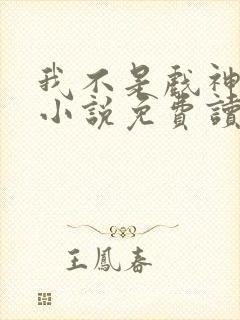 我不是戲神
小說免費讀
王鳳春